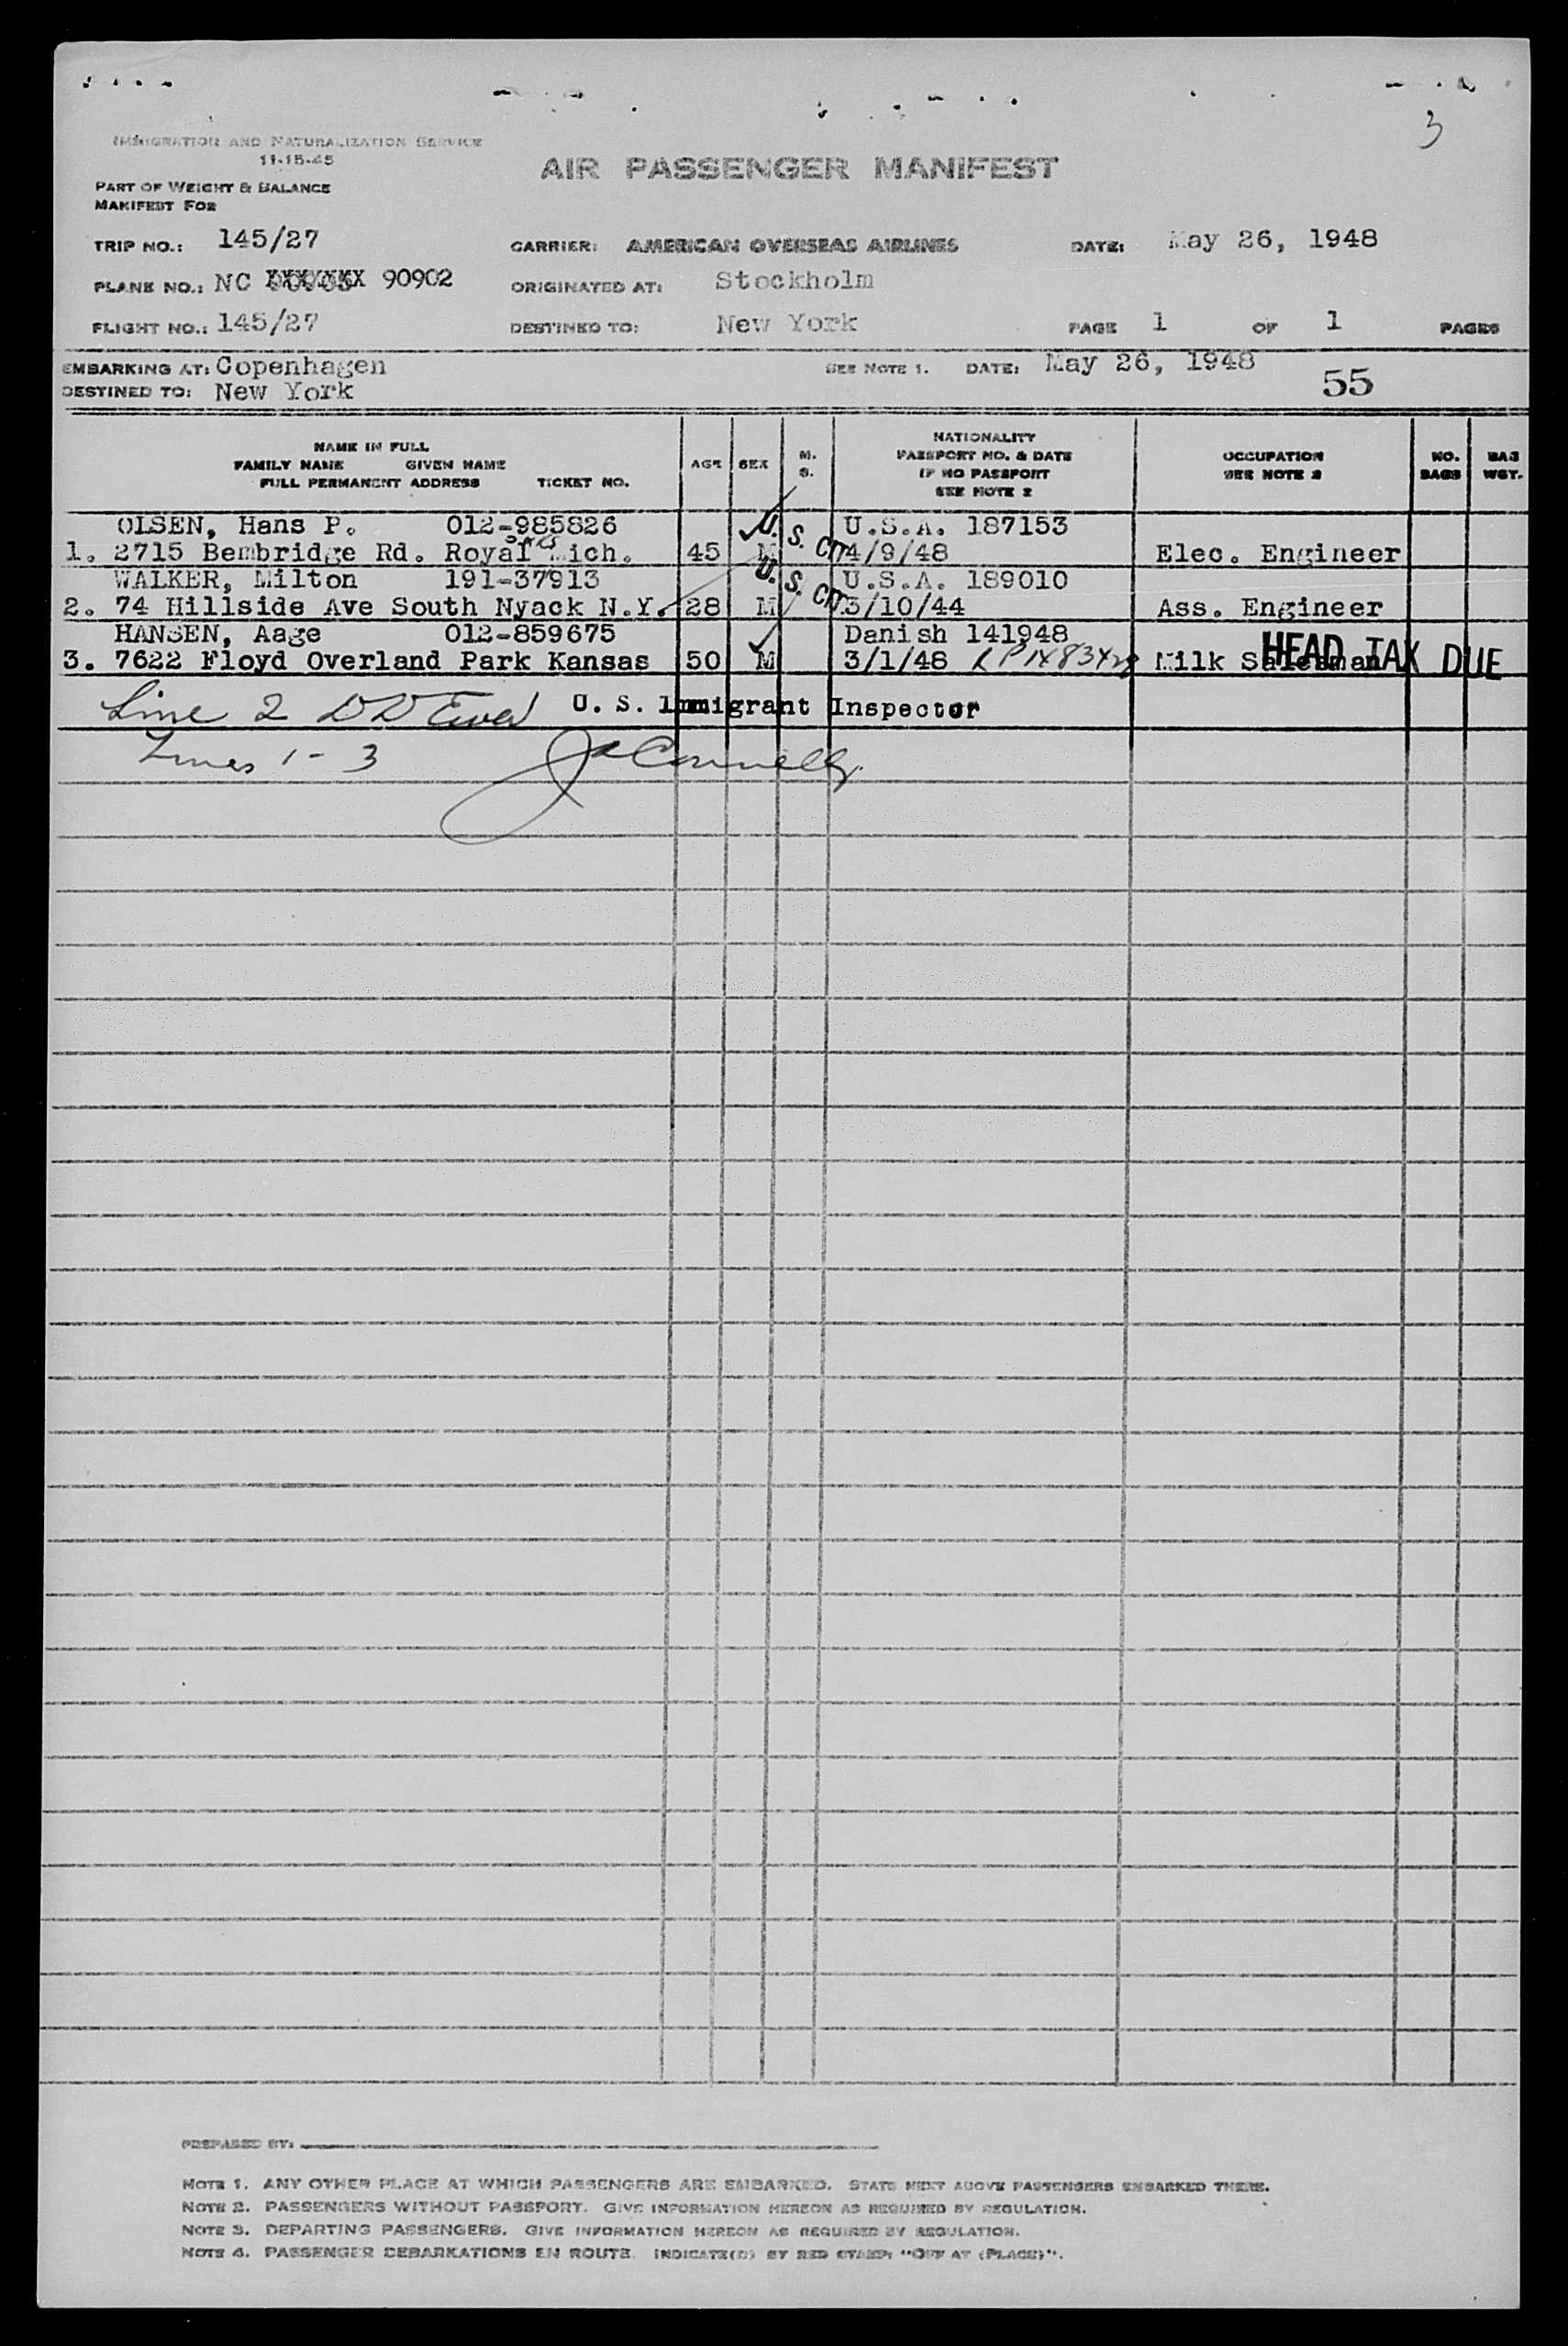 3
IMMIGRATION AND NATURALIZATION SERVICE
11-15-45
AIR PASSENGER MANIFEST
PART OF WEIGHT & BALANCE
MANIFEST FOR
TRIP NO.: 145/27 CARRIER: AMERICAN OVERSEAS AIRLINES DATE: May 26, 1948
PLANE NO.: NC 90902 ORIGINATED AT: Stockholm
FLIGHT NO.: 145/27 DESTINED TO: New York PAGE 1 OF 1 PAGES
EMBARKING AT: Copenhagen SEE NOTE 1. DATE: May 26, 1948
DESTINED TO: New York 55
NAME IN FULL
FAMILY NAME GIVEN NAME
FULL PERMANENT ADDRESS TICKET NO.
AGE SEX M. S.
NATIONALITY
PASSPORT NO. & DATE
IF NO PASSPORT
SEE NOTE 2
OCCUPATION
SEE NOTE 2
NO. BAGS
BAG WGT.
OLSEN, Hans P. 012-985826 U. S. CIT U.S.A. 187153
1. 2715 Bembridge Rd. Royal Oaks Mich. 45 M 4/9/48 Elec. Engineer
WALKER, Milton 191-37913 U. S. CIT U.S.A. 189010
2. 74 Hillside Ave South Nyack N.Y. 28 M 3/10/44 Ass. Engineer
HANSEN, Aage 012-859675 Danish 141948
3. 7622 Floyd Overland Park Kansas 50 M 3/1/48 Milk Salesman HEAD TAX DUE
Line 2 U. S. Immigrant Inspector
Lines 1 - 3 Connelly
PREPARED BY:
NOTE 1. ANY OTHER PLACE AT WHICH PASSENGERS ARE EMBARKED. STATE NEXT ABOVE PASSENGERS EMBARKED THERE.
NOTE 2. PASSENGERS WITHOUT PASSPORT. GIVE INFORMATION HEREON AS REQUIRED BY REGULATION.
NOTE 3. DEPARTING PASSENGERS. GIVE INFORMATION HEREON AS REQUIRED BY REGULATION.
NOTE 4. PASSENGER DEBARKATIONS EN ROUTE. INDICATE(D) BY RED STAMP: "OFF AT (PLACE)".